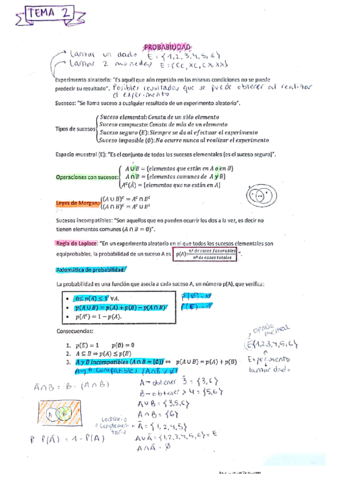 TEMA 2
PROBABILIDAD
Lanzar un dado E = {1,2,3,4,5,6}
Lanzar 2 monedas E = {CC, XC, CX, XX}
Experimento aleatorio: "Es aquel que aún repetido en las mismas condiciones no se puede
predecir su resultado". Posibles resultados que se puede obtener al realizar
el experimento
Sucesos: "Se llama suceso a cualquier resultado de un experimento aleatorio".
Suceso elemental: Consta de un sólo elemento
Suceso compuesto: Consta de más de un elemento
Tipos de sucesos
Suceso seguro (E): Siempre se da al efectuar el experimento
Suceso imposible (∅): No ocurre nunca al realizar el experimento
Espacio muestral (E): "Es el conjunto de todos los sucesos elementales (es el suceso seguro)".
A∪B = {elementos que están en A o en B}
Operaciones con sucesos: A∩B = {elementos comunes de A y B}
Aᶜ(Ā) = {elementos que no están en A}
Leyes de Morgan: (A∪B)ᶜ = Aᶜ∩Bᶜ
(A∩B)ᶜ = Aᶜ∪Bᶜ
Sucesos incompatibles: "Son aquellos que en pueden ocurrir los dos a la vez, es decir no
tienen elementos comunes (A∩B = ∅)".
Regla de Laplace: "En un experimento aleatorio en el que todos los sucesos elementales son
equiprobables, la probabilidad de un suceso A es p(A)= nº de casos favorables
nº de casos totales".
La probabilidad es una función que asocia a cada suceso A, un número p(A), que verifica:
• 0≤ p(A) ≤ 1
• p(A∪B) = p(A) + p(B) − p(A∩B)
• p(Aᶜ) = 1 − p(A).
Consecuencias:
1. p(E) = 1 p(∅) = 0
2. A ⊆ B ⇒ p(A) ≤ p(B)
3. A y B incompatibles (A∩B = ∅) ⇒ p(A∪B) = p(A) + p(B)
E{1,2,3,4,5,6}
Experimento
lanzar dado
A → obtener 3 = {3,6}
B → obtener ≥ 4 = {5,6}
A∪B = {3,5,6}
A∩B = {6}
Ā = {1,2,4,5}
A∪Ā = {1,2,3,4,5,6} = E
A∩Ā = ∅
P(Ā) = 1 - P(A)